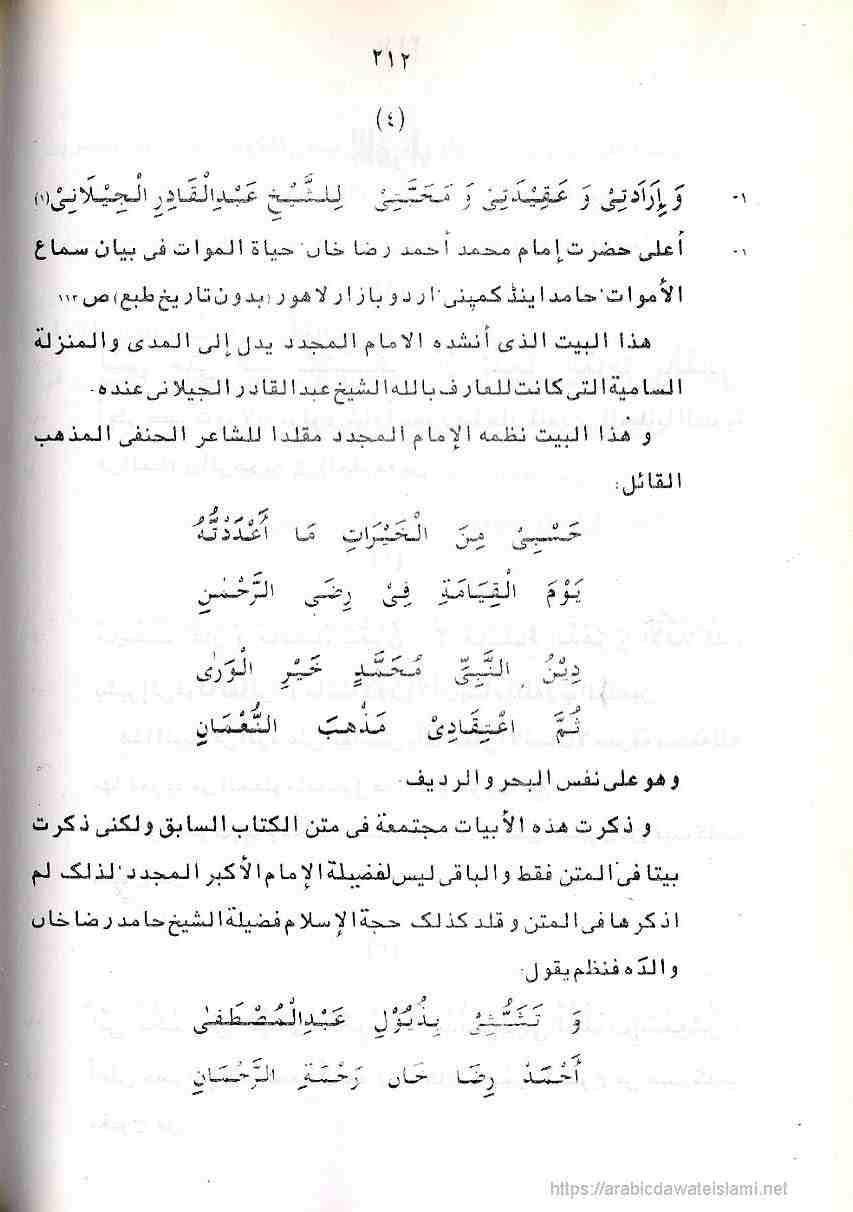 ٢١٢
(٤)
١- وَ إِرَادَتِیْ وَ عَقِیْدَتِیْ وَ مَحَبَّتِیْ لِلشَّیْخِ عَبْدِالْقَادِرِ الْجِیْلَانِیْ(١)
١- أعلی حضرت إمام محمد أحمد رضا خاں' حیاة الموات فی بیان سماع
الأموات' حامد اینڈ کمپنی' اردو بازار لاهور (بدون تاریخ طبع) ص ١١٣
هذا البیت الذی أنشده الامام المجدد یدل إلی المدی والمنزلة
السامیة التی کانت للعارف بالله الشیخ عبدالقادر الجیلانی عنده۔
و هذا البیت نظمه الإمام المجدد مقلدا للشاعر الحنفی المذهب
القائل:
حَسْبِیْ مِنَ الْخَیْرَاتِ مَا أَعْدَدْتُّهُ
یَوْمَ الْقِیَامَةِ فِیْ رِضَی الرَّحْمٰنِ
دِیْنُ النَّبِیِّ مُحَمَّدٍ خَیْرِ الْوَرٰی
ثُمَّ اعْتِقَادِیْ مَذْهَبَ النُّعْمَانِ
وهو علی نفس البحر و الردیف۔
و ذکرت هذه الأبیات مجتمعة فی متن الکتاب السابق ولکنی ذکرت
بیتا فی المتن فقط والباقی لیس لفضیلة الإمام الأکبر المجدد' لذلک لم
اذکرها فی المتن و قلد کذلک حجة الإسلام فضیلة الشیخ حامد رضا خاں
والدَه فنظم یقول:
وَ تَشَبُّثِیْ بِذُیُوْلِ عَبْدِالْمُصْطَفٰی
أَحْمَدْ رِضَا خَاں رَحْمَةِ الرَّحْمَانِ
https://arabicdawateislami.net